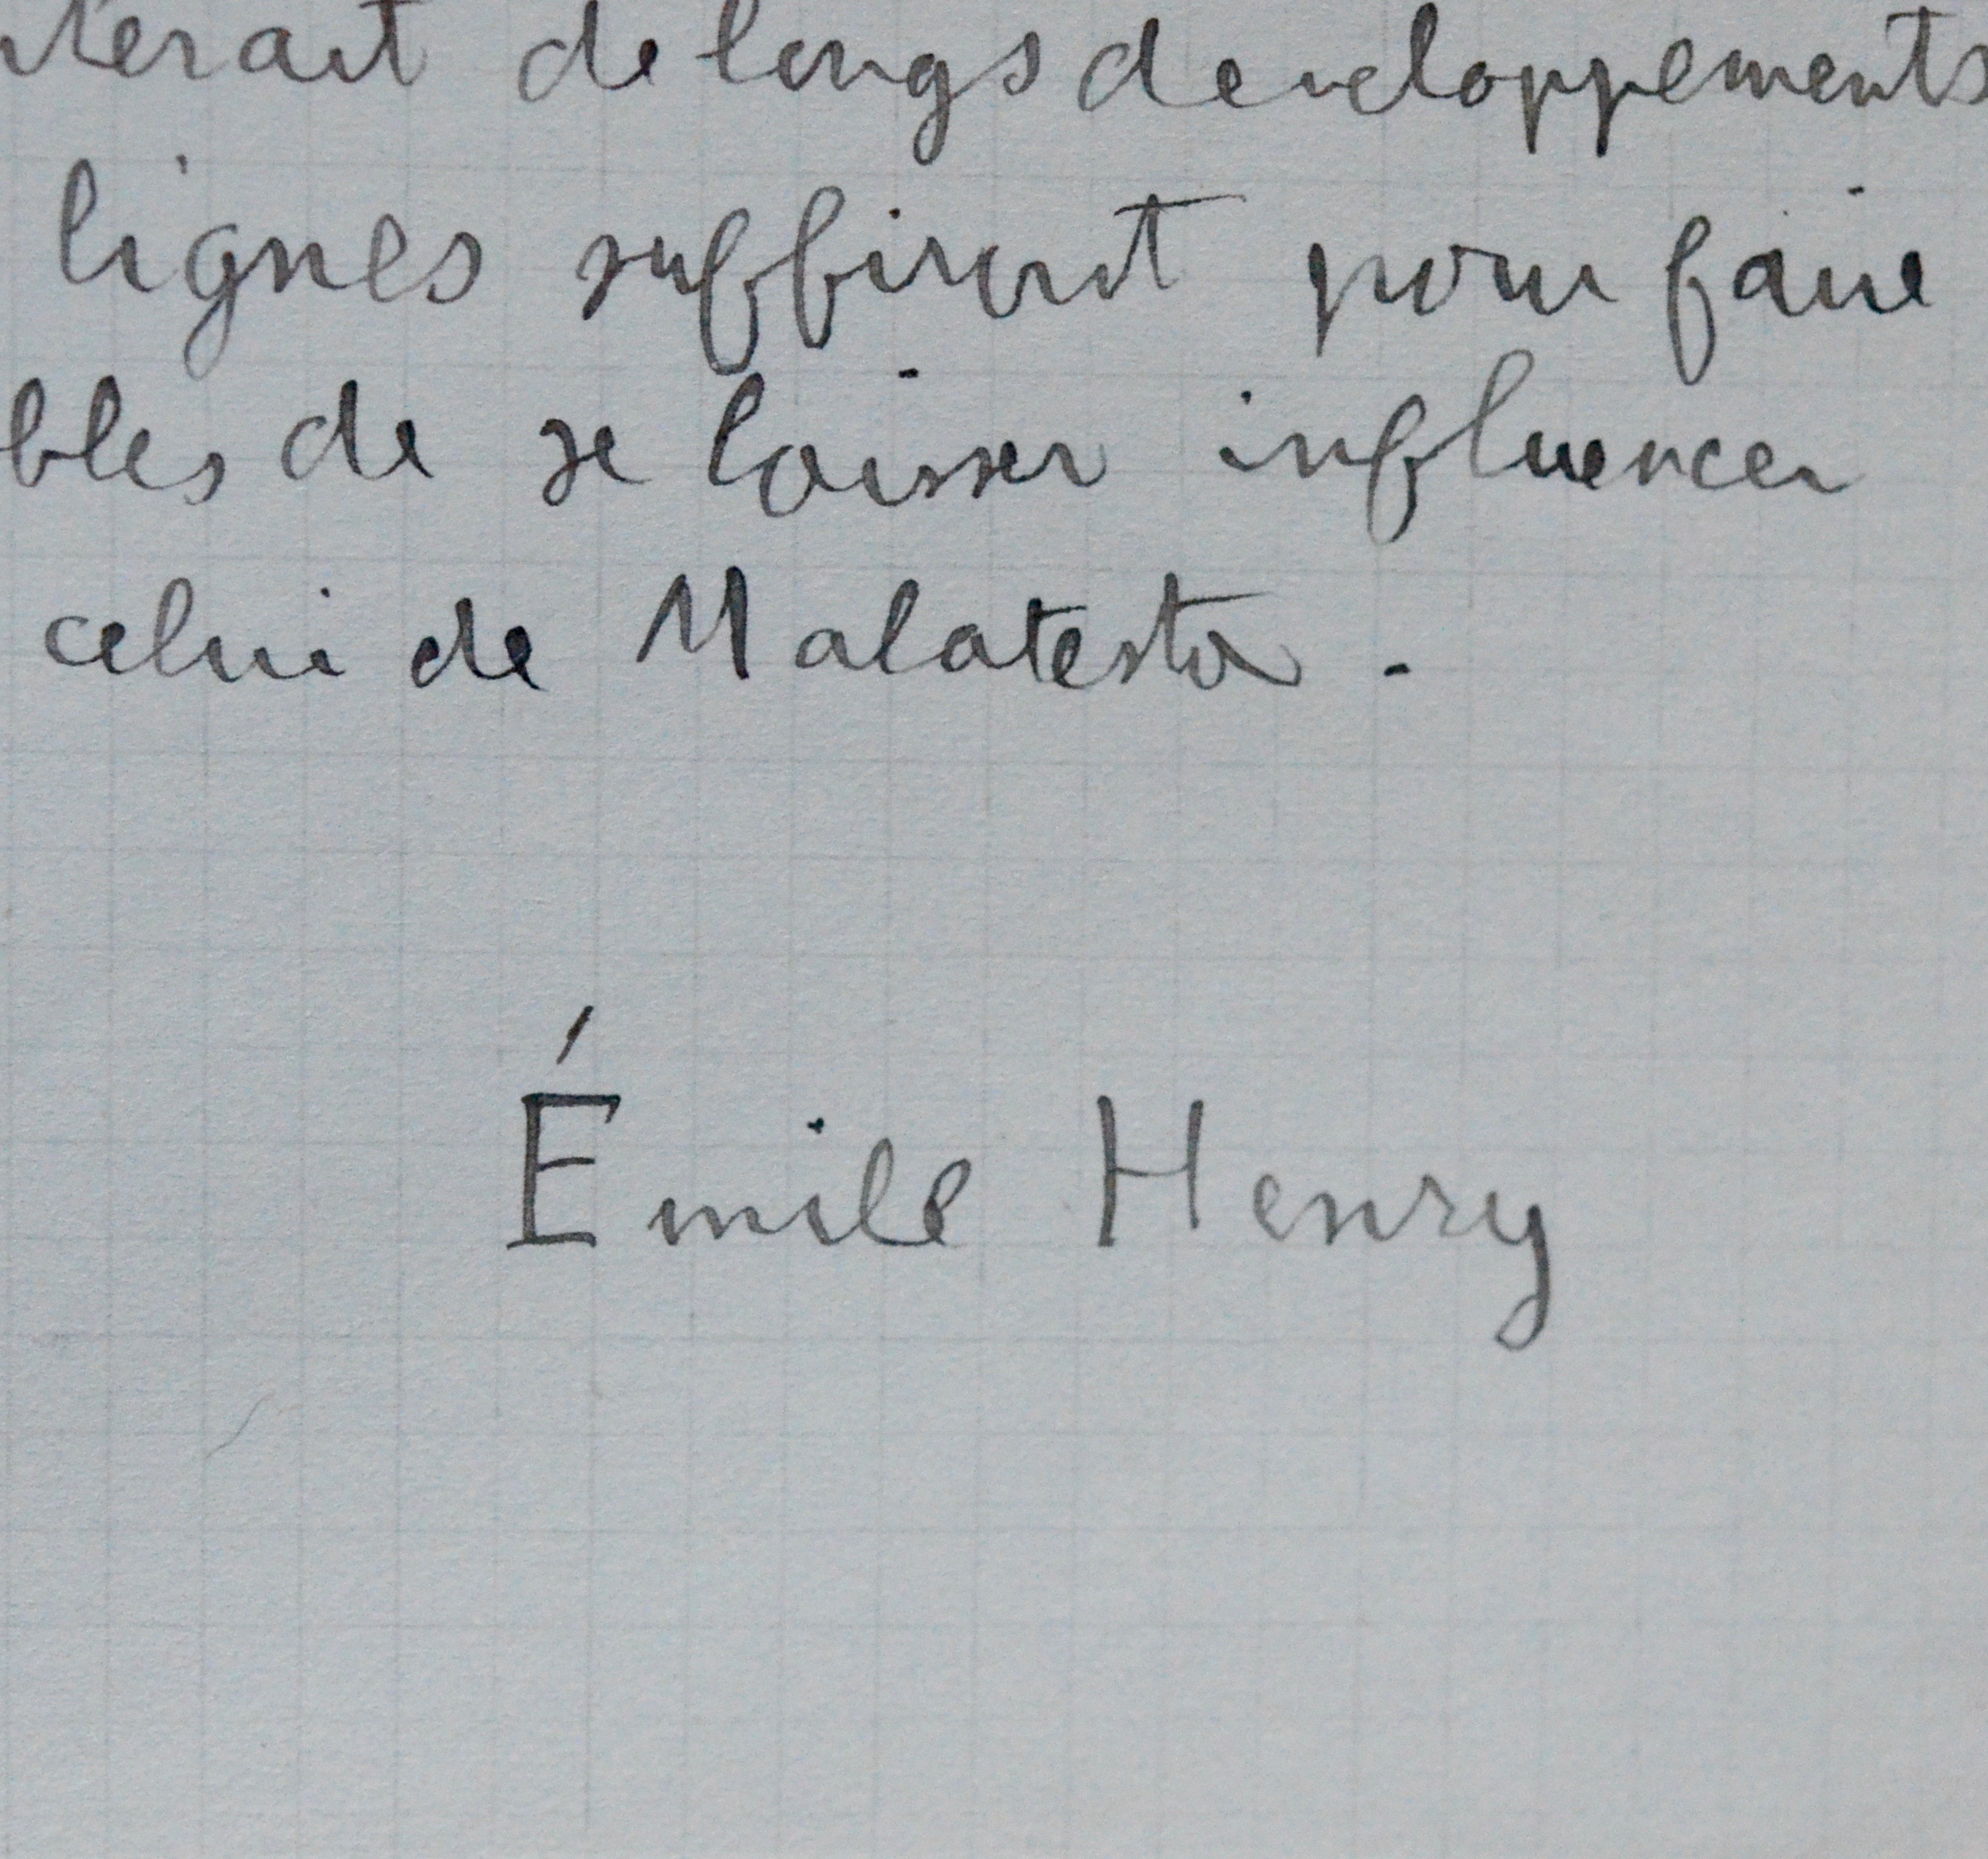 terait de longs developpements
lignes suffiront pour faire
bles de se laisser influencer
celui de Malatesta.
Émile Henry